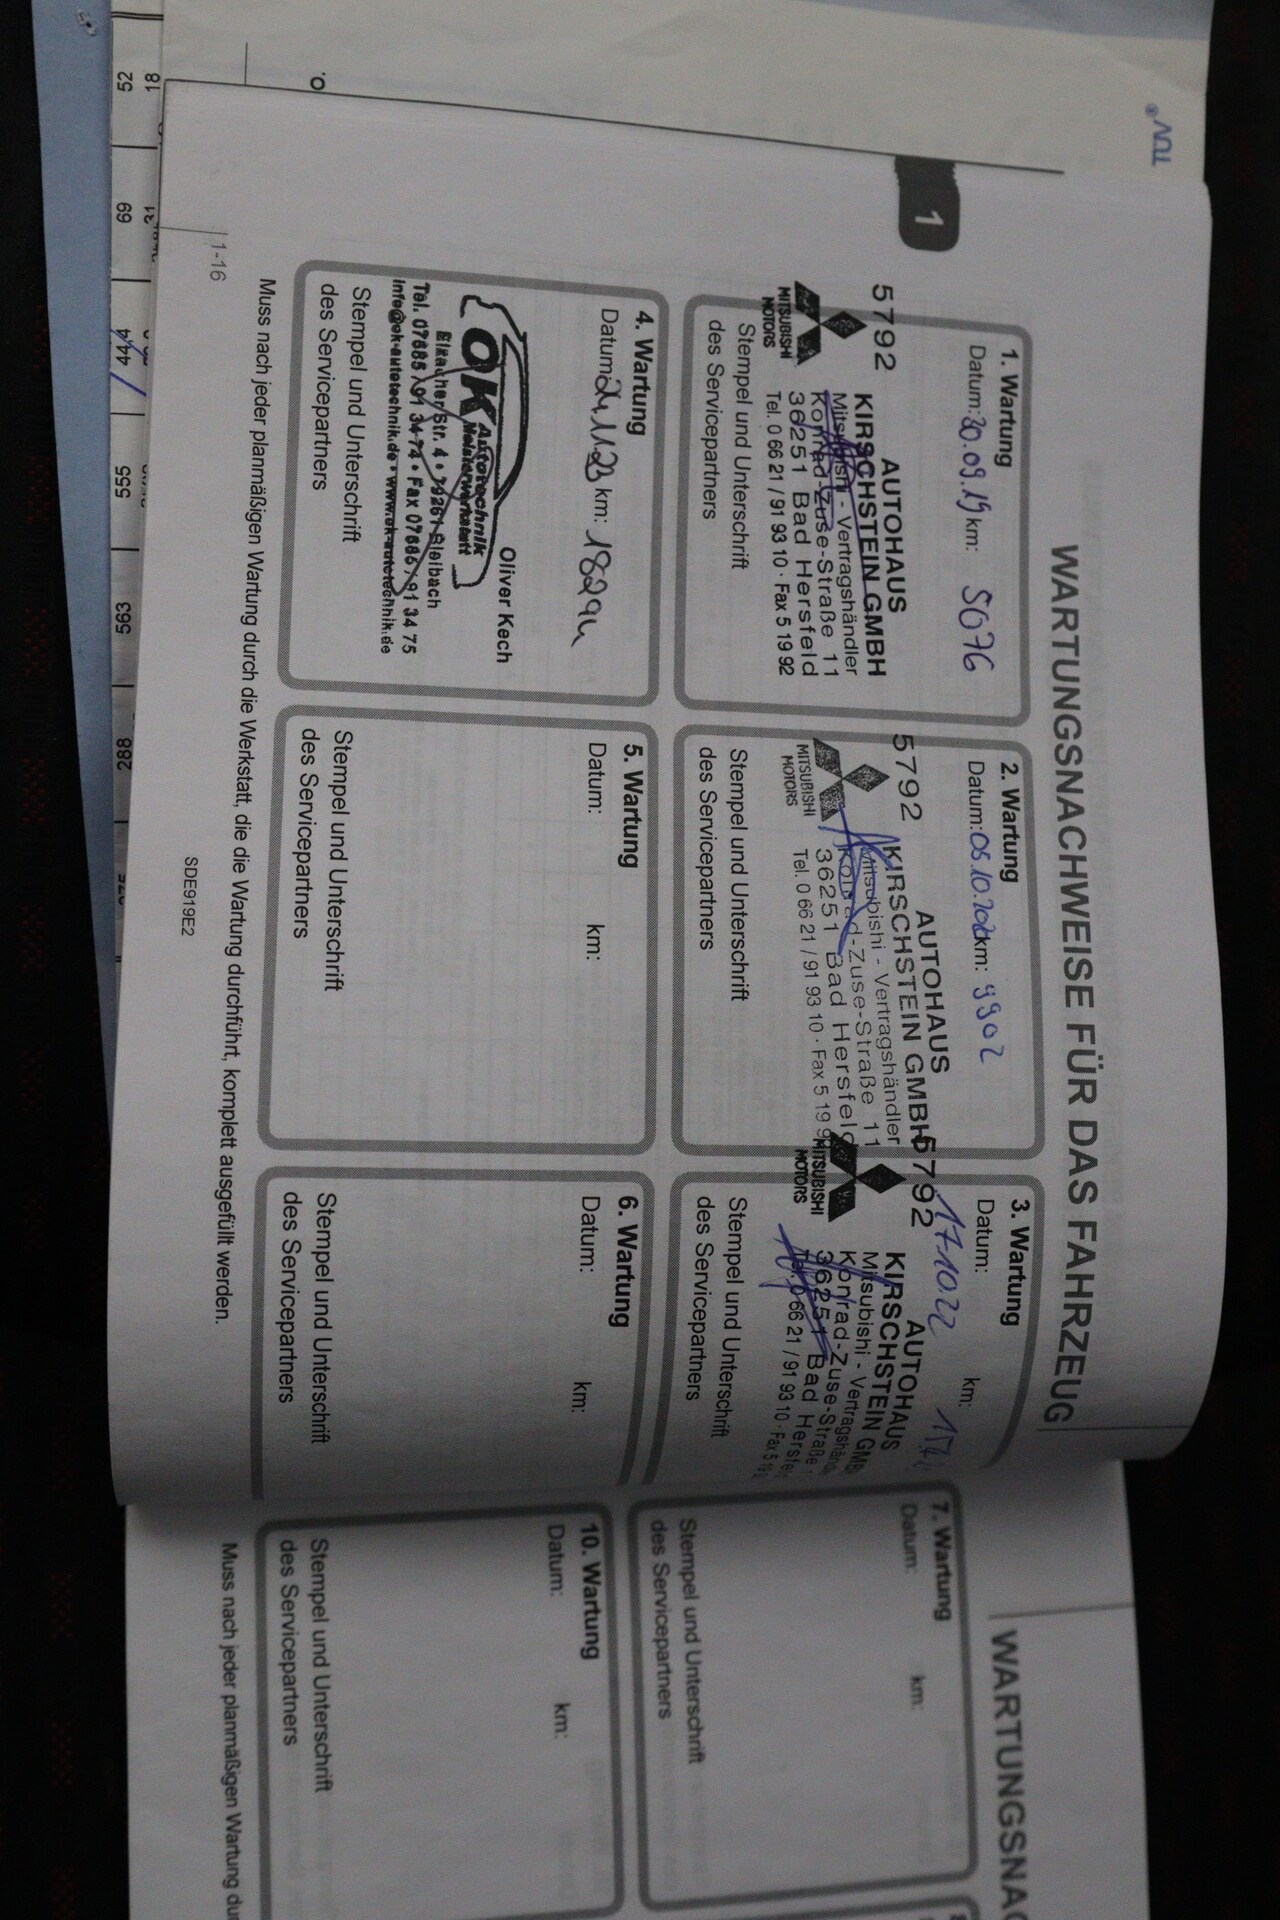 TÜV®
1
WARTUNGSNACHWEISE FÜR DAS FAHRZEUG
1. Wartung
Datum: 30.09.19 km: 5076
5792
AUTOHAUS
KIRSCHSTEIN GMBH
Mitsubishi - Vertragshändler
Konrad-Zuse-Straße 11
36251 Bad Hersfeld
Tel. 0 66 21 / 91 93 10 · Fax 5 19 92
MITSUBISHI
MOTORS
Stempel und Unterschrift
des Servicepartners
2. Wartung
Datum: km: 9902
5792
AUTOHAUS
KIRSCHSTEIN GMBH
Mitsubishi - Vertragshändler
Konrad-Zuse-Straße 11
36251 Bad Hersfeld
Tel. 0 66 21 / 91 93 10 · Fax 5 19 9
MITSUBISHI
MOTORS
Stempel und Unterschrift
des Servicepartners
3. Wartung
Datum: km:
17.10.22
5792
AUTOHAUS
KIRSCHSTEIN GMB
Mitsubishi - Vertragshänd
Konrad-Zuse-Straße
36251 Bad Hersfe
Tel. 0 66 21 / 91 93 10 · Fax 5 19
MITSUBISHI
MOTORS
Stempel und Unterschrift
des Servicepartners
4. Wartung
Datum: km:
Oliver Kech
OK Autotechnik
Meisterwerkstatt
Elzacher Str. 4 • 79261 Bleibach
Tel. 07685 / 91 34 74 • Fax 07685 / 91 34 75
info@ok-autotechnik.de • www.ok-autotechnik.de
Stempel und Unterschrift
des Servicepartners
5. Wartung
Datum: km:
Stempel und Unterschrift
des Servicepartners
6. Wartung
Datum: km:
Stempel und Unterschrift
des Servicepartners
Muss nach jeder planmäßigen Wartung durch die Werkstatt, die die Wartung durchführt, komplett ausgefüllt werden.
1-16
SDE919E2
WARTUNGSNAC
7. Wartung
Datum: km:
Stempel und Unterschrift
des Servicepartners
10. Wartung
Datum: km:
Stempel und Unterschrift
des Servicepartners
Muss nach jeder planmäßigen Wartung dur
18
52 69 44,4 555 563 288